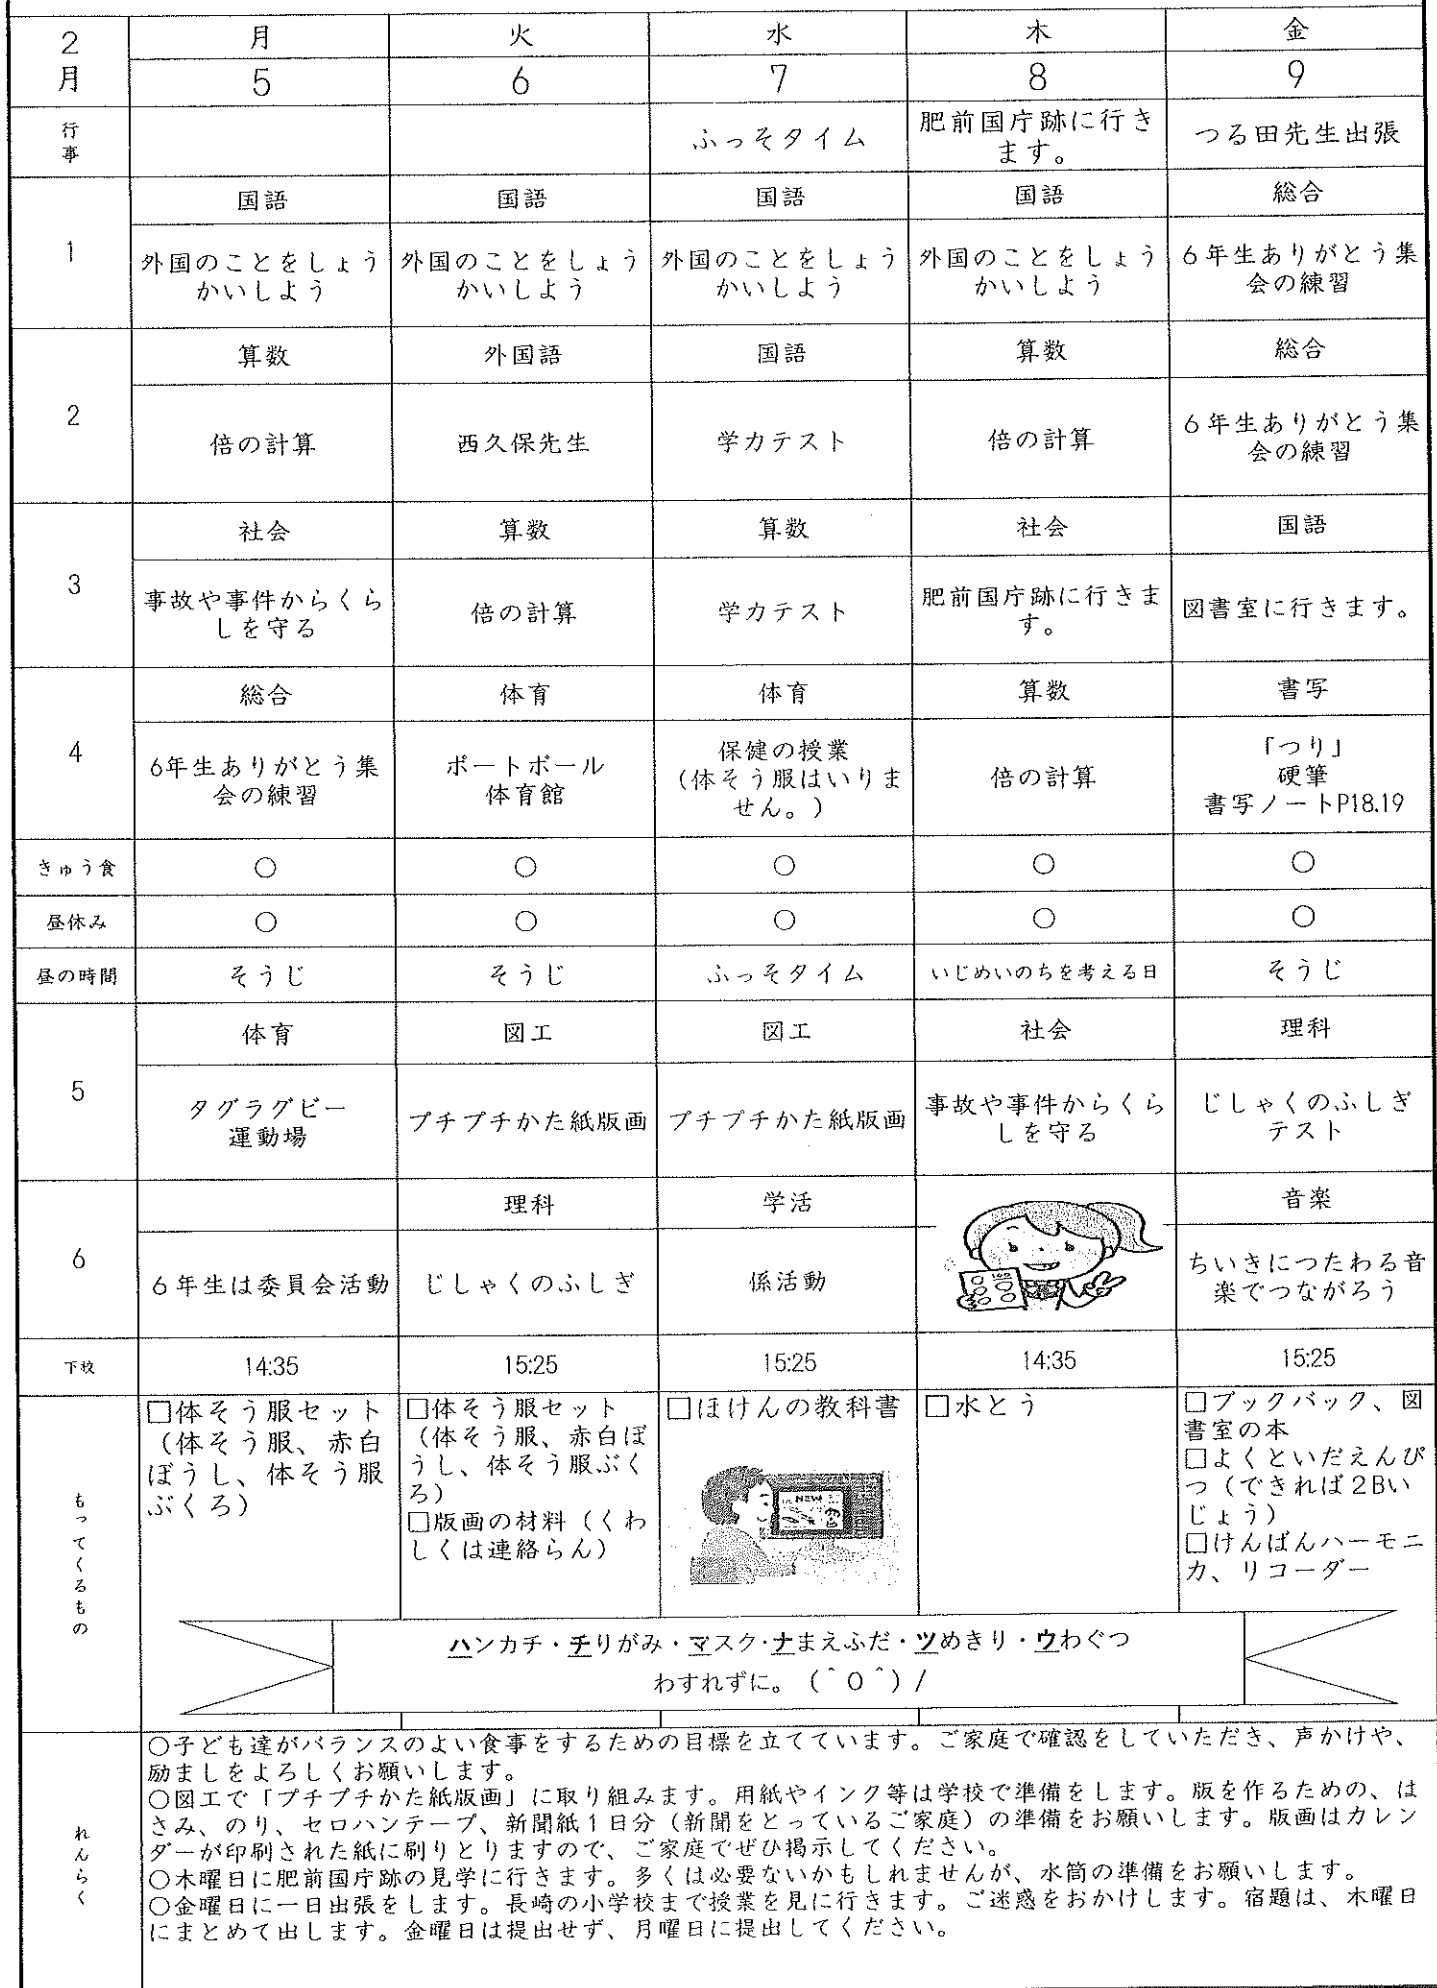 2月 月 火 水 木 金
5 6 7 8 9
行事 ふっそタイム 肥前国庁跡に行き つる田先生出張
ます。
1 国語 国語 国語 国語 総合
外国のことをしょう 外国のことをしょう 外国のことをしょう 外国のことをしょう 6年生ありがとう集
かいしよう かいしよう かいしよう かいしよう 会の練習
2 算数 外国語 国語 算数 総合
倍の計算 西久保先生 学力テスト 倍の計算 6年生ありがとう集
会の練習
3 社会 算数 算数 社会 国語
事故や事件からくら 倍の計算 学力テスト 肥前国庁跡に行きま 図書室に行きます。
しを守る す。
4 総合 体育 体育 算数 書写
6年生ありがとう集 ポートボール 保健の授業 倍の計算 「つり」
会の練習 体育館 (体そう服はいりま 硬筆
せん。) 書写ノートP18.19
きゅう食 ○ ○ ○ ○ ○
昼休み ○ ○ ○ ○ ○
昼の時間 そうじ そうじ ふっそタイム いじめいのちを考える日 そうじ
5 体育 図工 図工 社会 理科
タグラグビー プチプチかた紙版画 プチプチかた紙版画 事故や事件からくら じしゃくのふしぎ
運動場 しを守る テスト
6 理科 学活 音楽
6年生は委員会活動 じしゃくのふしぎ 係活動 ちいきにつたわる音
楽でつながろう
下校 14:35 15:25 15:25 14:35 15:25
もってくるもの
□体そう服セット
(体そう服、赤白
ぼうし、体そう服
ぶくろ)
□体そう服セット
(体そう服、赤白ぼ
うし、体そう服ぶく
ろ)
□版画の材料(くわ
しくは連絡らん)
□ほけんの教科書
NEW
□水とう
□ブックバック、図
書室の本
□よくといだえんぴ
つ(できれば2Bい
じょう)
□けんばんハーモニ
カ、リコーダー
ハンカチ・チりがみ・マスク・ナまえふだ・ツめきり・ウわぐつ
わすれずに。(^O^)/
れんらく
○子ども達がバランスのよい食事をするための目標を立てています。ご家庭で確認をしていただき、声かけや、
励ましをよろしくお願いします。
○図工で「プチプチかた紙版画」に取り組みます。用紙やインク等は学校で準備をします。版を作るための、は
さみ、のり、セロハンテープ、新聞紙1日分(新聞をとっているご家庭)の準備をお願いします。版画はカレン
ダーが印刷された紙に刷りとりますので、ご家庭でぜひ掲示してください。
○木曜日に肥前国庁跡の見学に行きます。多くは必要ないかもしれませんが、水筒の準備をお願いします。
○金曜日に一日出張をします。長崎の小学校まで授業を見に行きます。ご迷惑をおかけします。宿題は、木曜日
にまとめて出します。金曜日は提出せず、月曜日に提出してください。